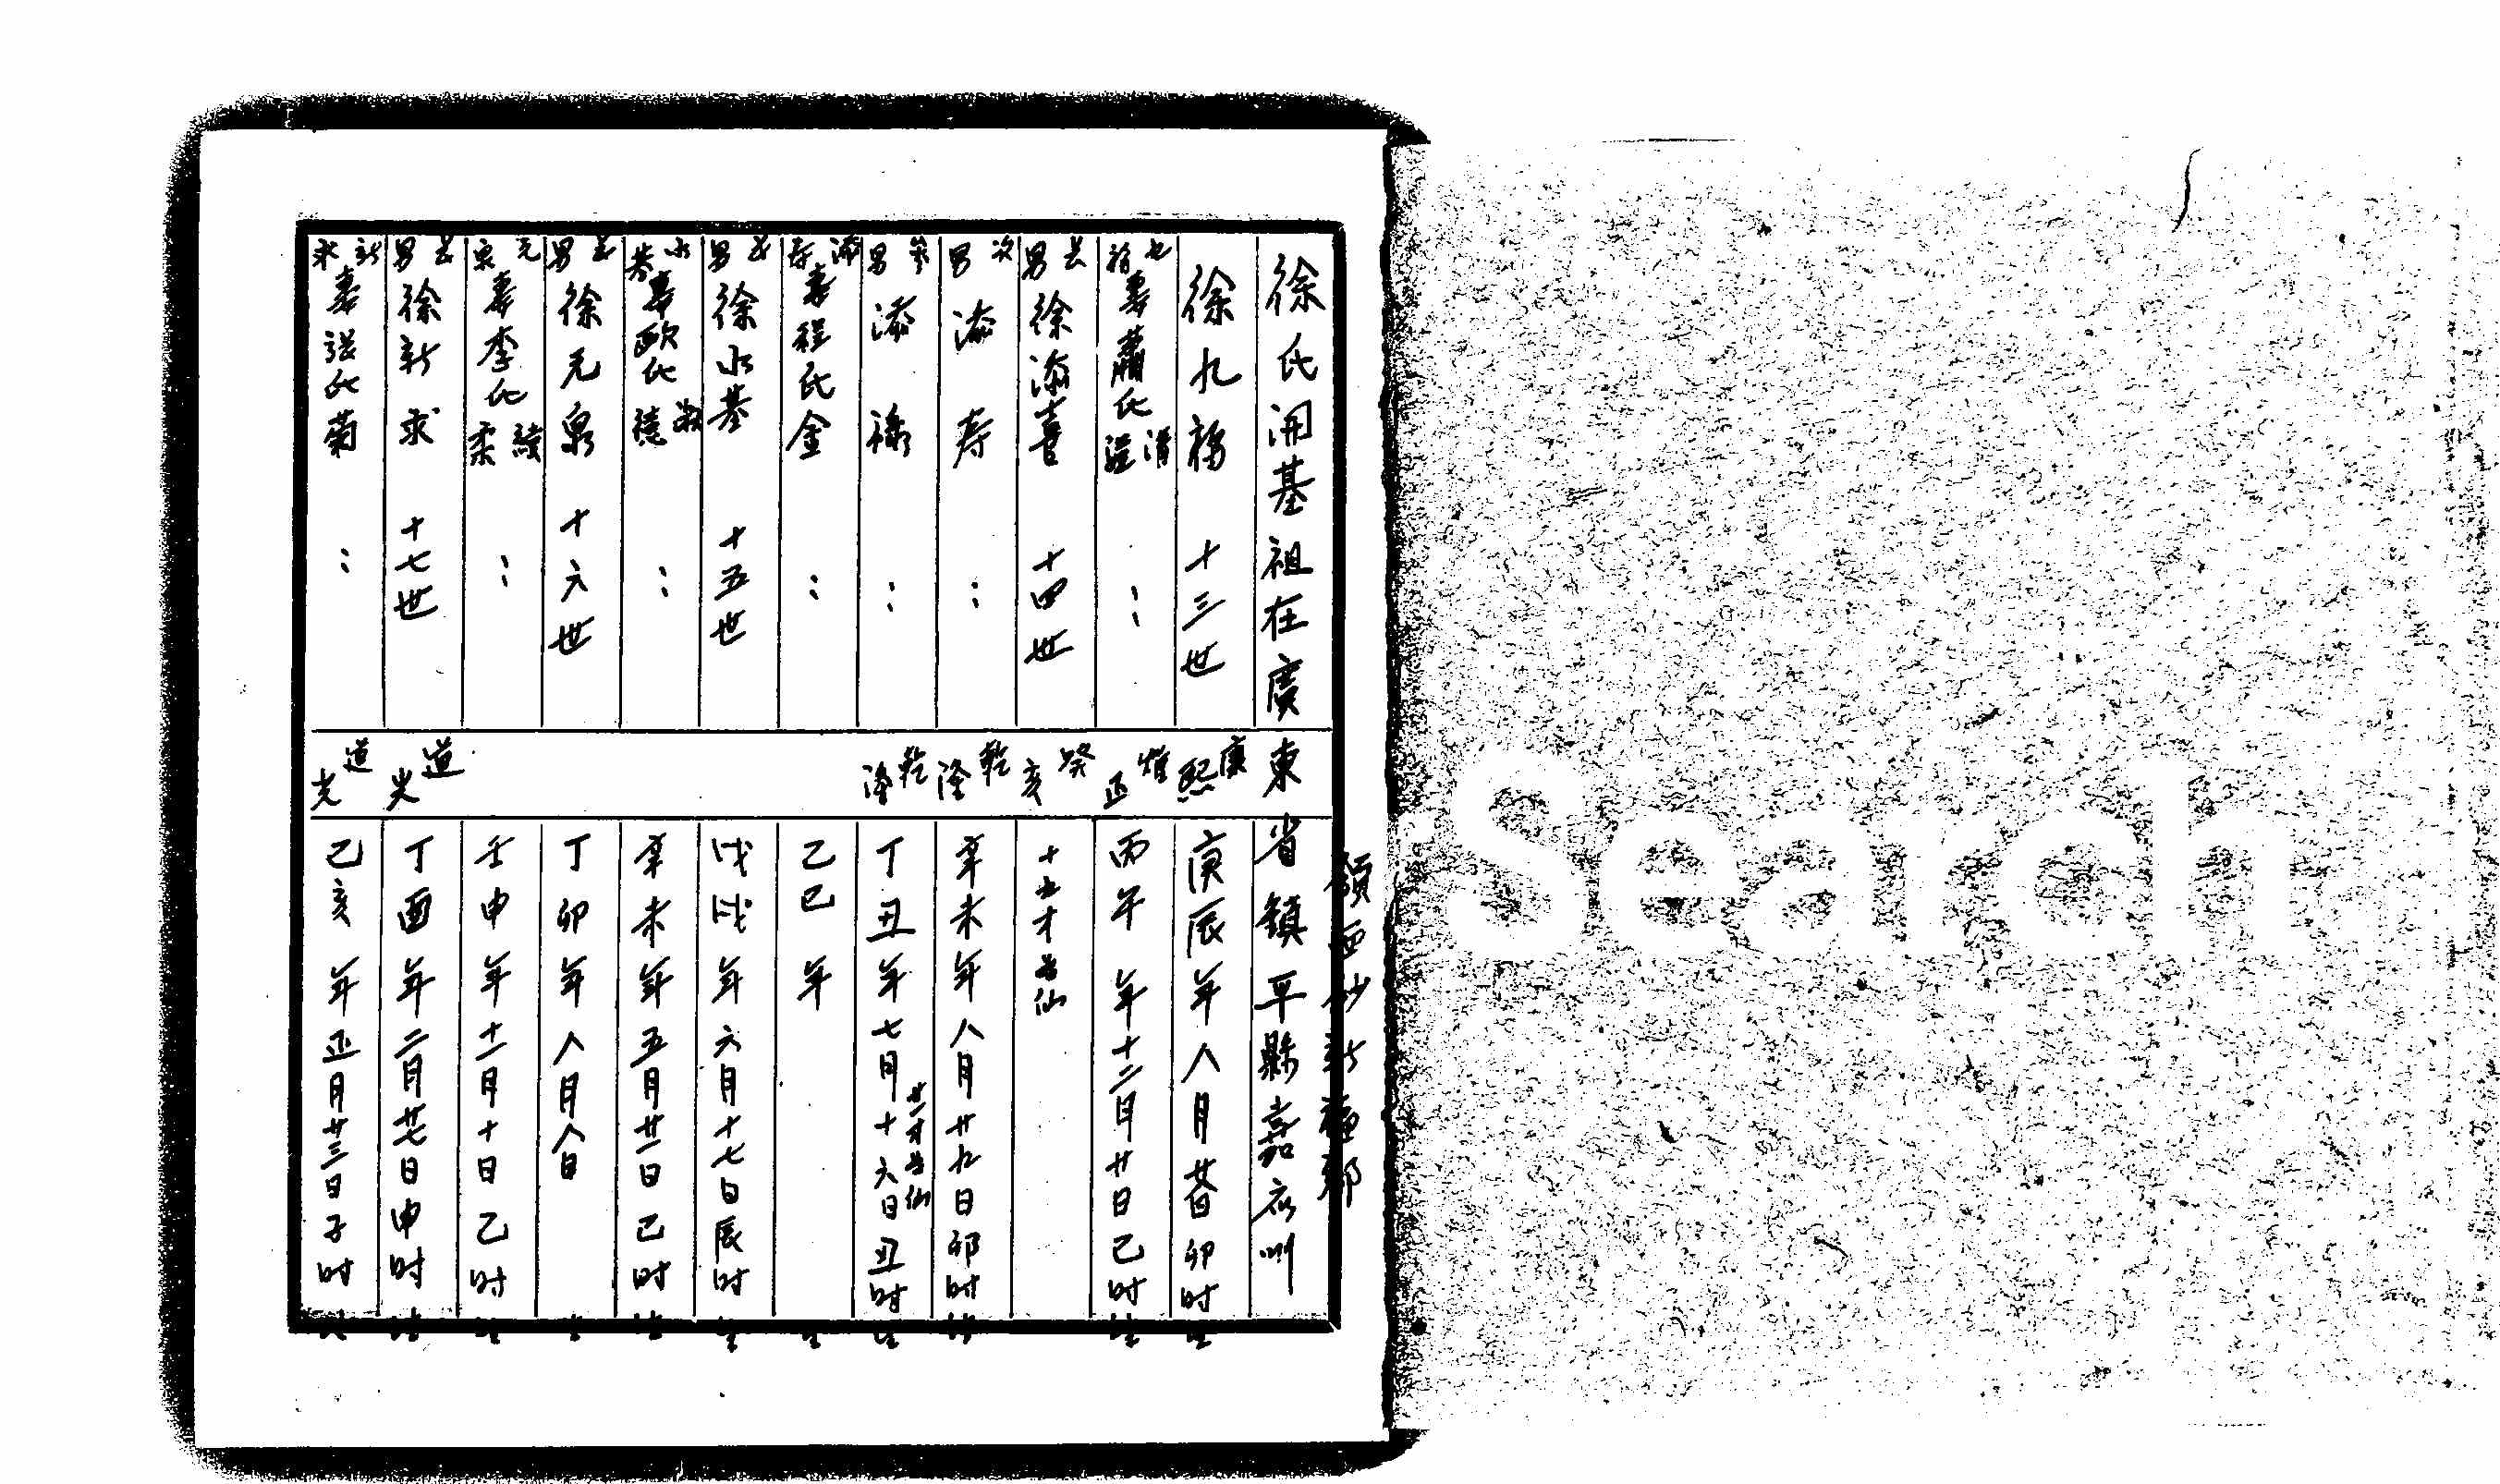 徐氏開基祖在廣東省鎮平縣嘉应州
徐九 十三世 康熙 庚辰年八月 日卯時生
妻蕭氏 : 雍正 丙午年十二月廿日己时生
長男 徐添喜 十四世 癸亥 十 才
次男 添寿 : 乾隆 辛未年八月廿九日卯时生
男 添祿 : 乾隆 丁丑年七月十六日丑时生 廿一才
添寿 妻程氏金 : 乙巳年 生
長男 徐水基 十五世 戊戌年六月十七日辰时生
水基 妻歐氏 德 : 辛未年五月廿一日己时生
長男 徐元泉 十六世 丁卯年八月八日 生
元泉 妻李氏 柔 : 壬申年十一月十日乙时生
長男 徐新求 十七世 道光 丁酉年二月廿七日申时生
新求 妻張氏菊 : 道光 己亥年正月廿三日子时生
Search